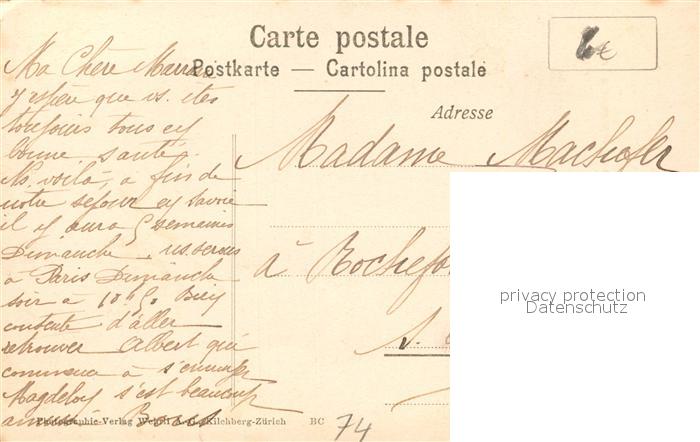 Carte postale
Postkarte — Cartolina postale
6€
Adresse
Ma Chère Maman
j'espère que vs. êtes
toujours tous en
bonne santé.
Ns. voilà, à fin de
notre séjour en Savoie
il y aura 5 semaines
Dimanche. ns. serons
à Paris Dimanche
soir à 10h5. Bien
contente d'aller
retrouver Albert qui
commence à s'ennuyer
s'est beaucoup
Madame
à Rochefor
S.
privacy protection
Datenschutz
Photographie-Verlag Wehrli A.-G. Kilchberg-Zürich BC
74